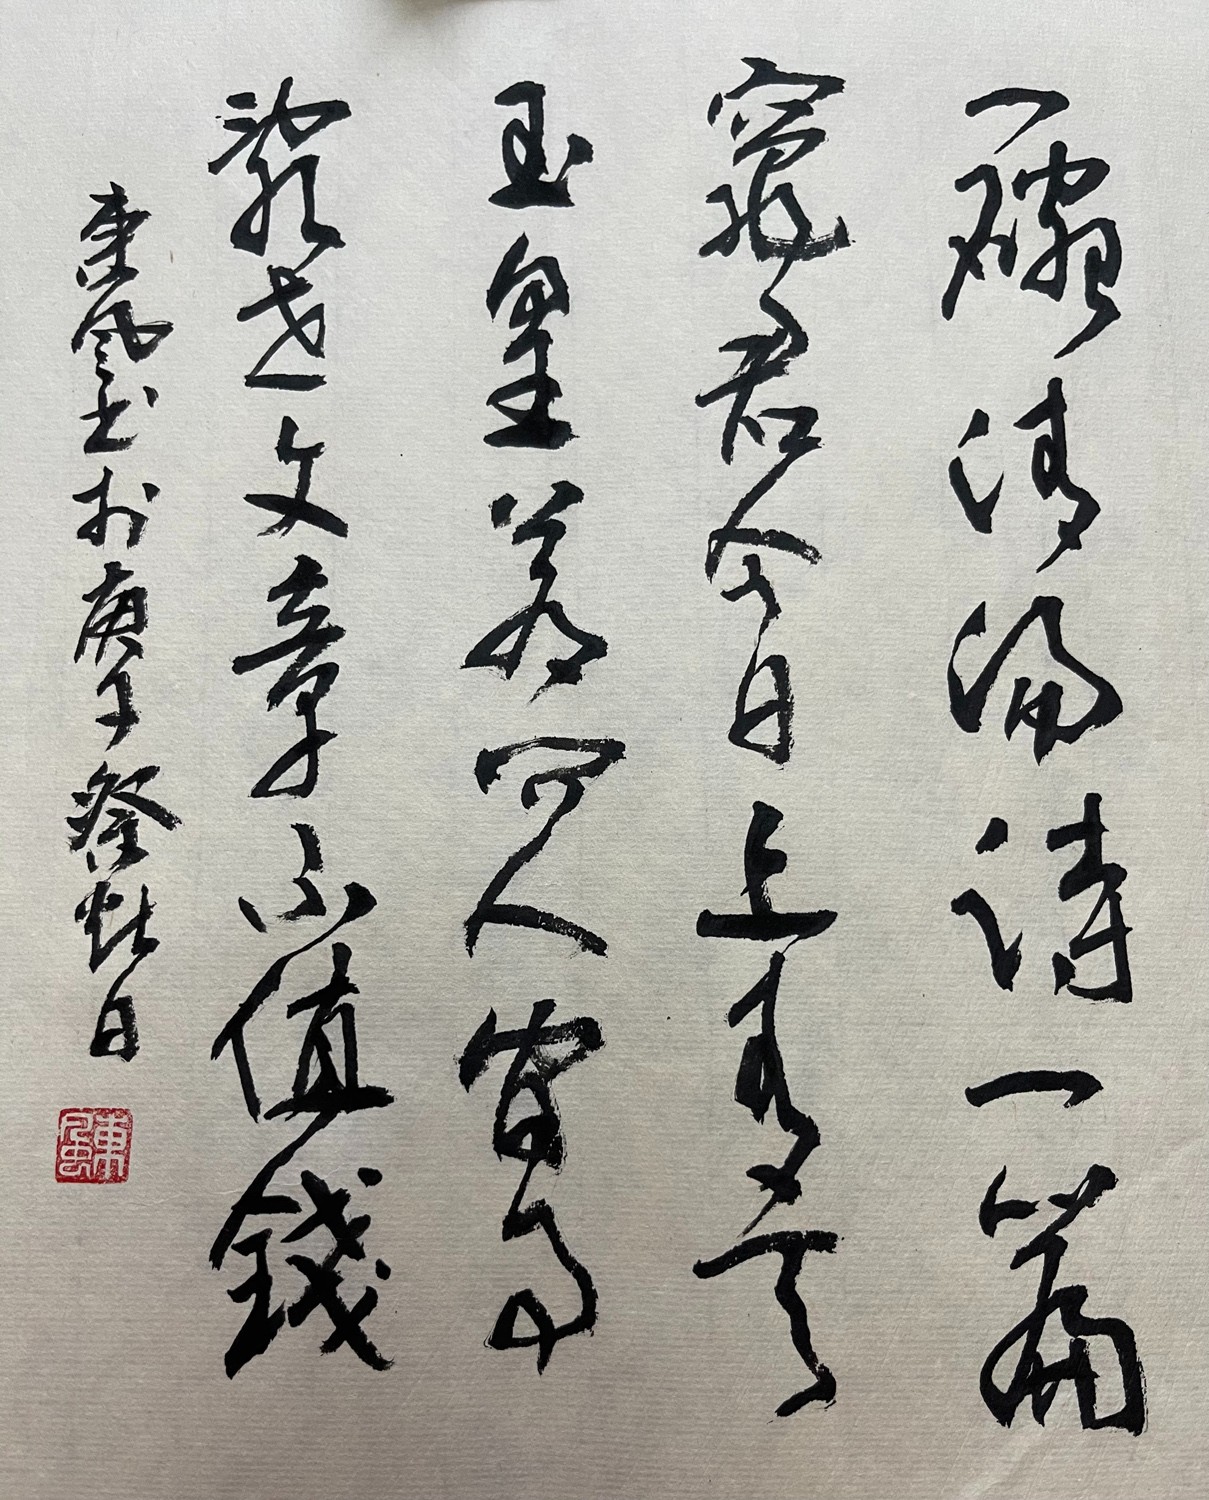 一碗清湯詩一篇
竈君今日上青天
玉皇若問人間事
亂世文章不值錢
東風書於庚子祭灶日